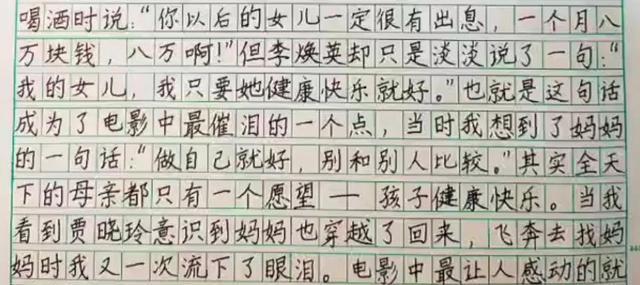 喝酒时说：“你以后的女儿一定很有出息，一个月八
万块钱，八万啊！”但李焕英却只是淡淡说了一句：“
我的女儿，我只要她健康快乐就好。”也就是这句话
成为了电影中最催泪的一个点，当时我想到了妈妈
的一句话：“做自己就好，别和别人比较。”其实全天
下的母亲都只有一个愿望——孩子健康快乐。当我
看到贾晓玲意识到妈妈也穿越了回来，飞奔去找妈
妈时我又一次流下了眼泪。电影中最让人感动的就